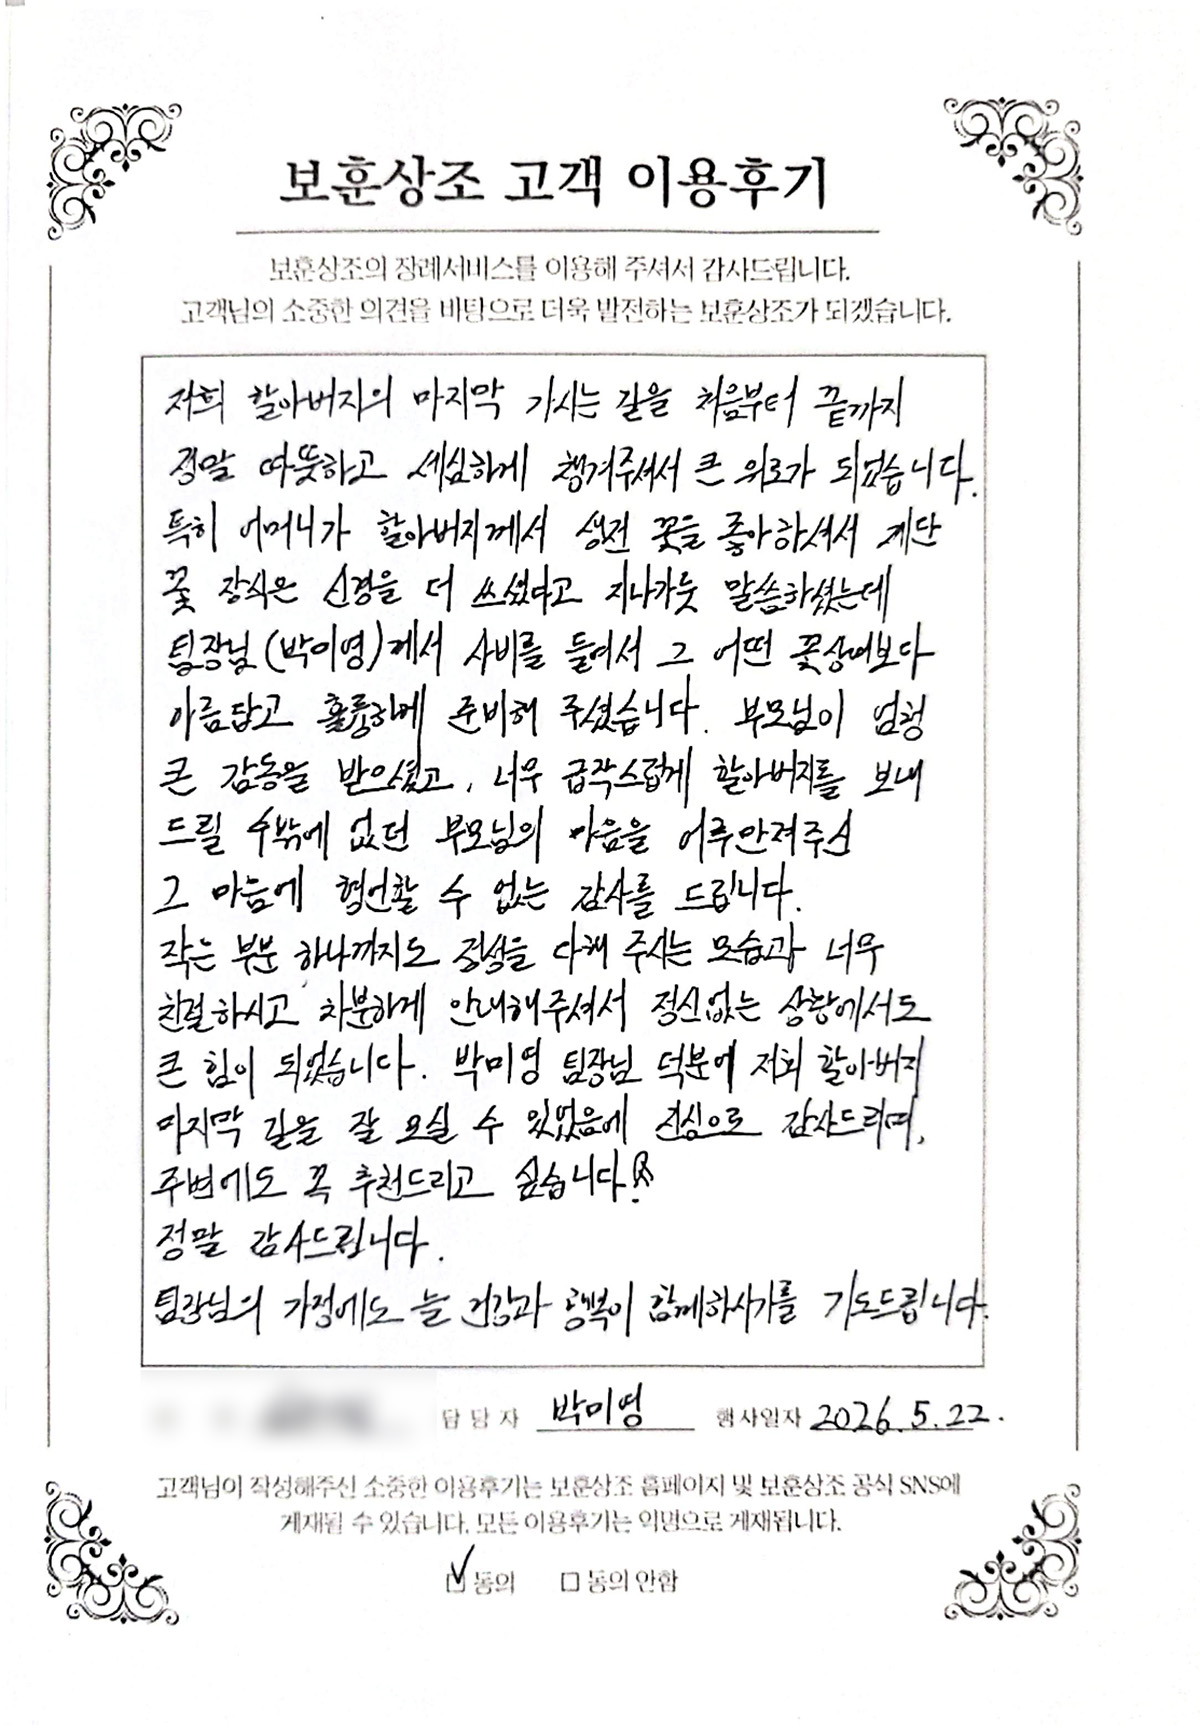 보훈상조 고객 이용후기
보훈상조의 장례서비스를 이용해 주셔서 감사드립니다.
고객님의 소중한 의견을 바탕으로 더욱 발전하는 보훈상조가 되겠습니다.
저희 할아버지의 마지막 가시는 길을 처음부터 끝까지
정말 따뜻하고 세심하게 챙겨주셔서 큰 위로가 되었습니다.
특히 어머니가 할아버지께서 생전 꽃을 좋아하셔서 제단
꽃 장식은 신경을 더 쓰셨다고 지나가듯 말씀하셨는데
팀장님(박미영)께서 사비를 들여서 그 어떤 꽃상여보다
아름답고 훌륭하게 준비해 주셨습니다. 부모님이 엄청
큰 감동을 받으셨고, 너무 급작스럽게 할아버지를 보내
드릴 수밖에 없던 부모님의 마음을 어루만져주신
그 마음에 형언할 수 없는 감사를 드립니다.
작은 부분 하나까지도 정성을 다해 주시는 모습과 너무
친절하시고 차분하게 안내해주셔서 정신없는 상황에서도
큰 힘이 되었습니다. 박미영 팀장님 덕분에 저희 할아버지
마지막 길을 잘 모실 수 있었음에 진심으로 감사드리며,
주변에도 꼭 추천드리고 싶습니다!
정말 감사드립니다.
팀장님의 가정에도 늘 건강과 행복이 함께하시기를 기도드립니다.
담당자 박미영 행사일자 2026.5.22.
고객님이 작성해주신 소중한 이용후기는 보훈상조 홈페이지 및 보훈상조 공식 SNS에
게재될 수 있습니다. 모든 이용후기는 익명으로 게재됩니다.
☑ 동의 □ 동의 안함